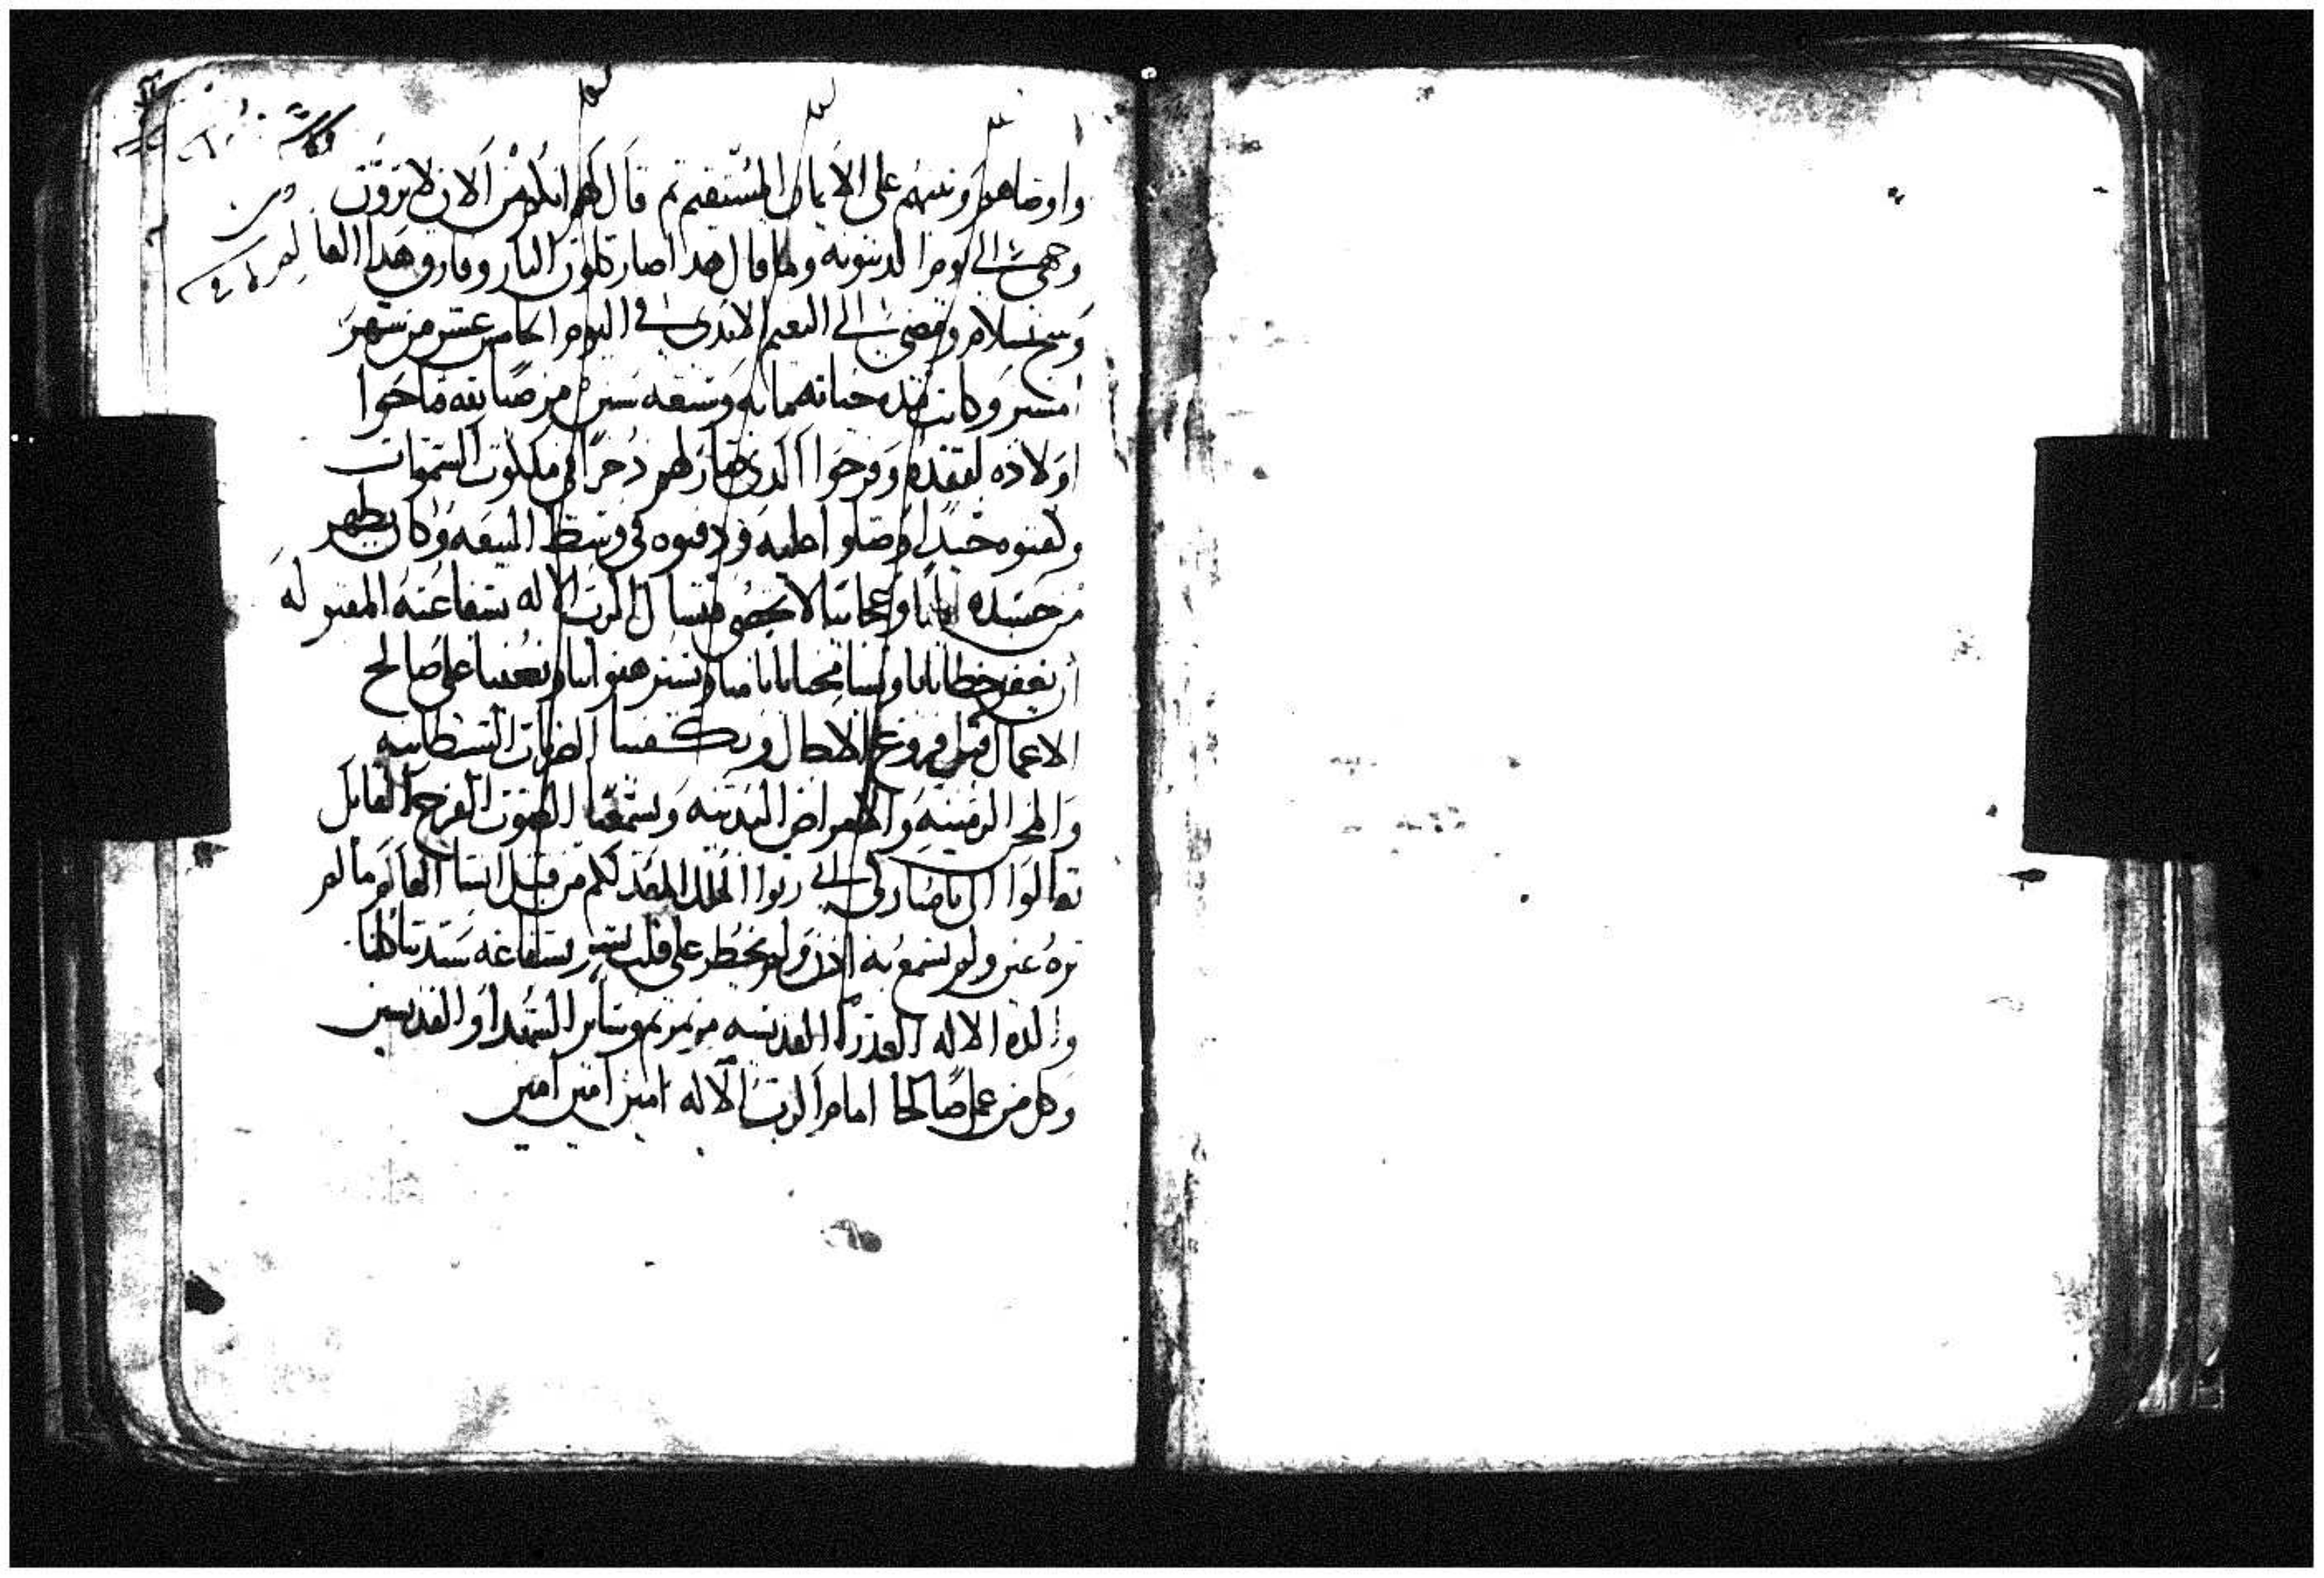 واوصاهم وثبتهم على الايمان المستقيم ثم قال لهم انكم من الان لا ترون
وجهى الى يوم الدينونه ولما قال هدا صار كلون النار وفارق هدا العالم
وتنيح بسلام ومضى الى النعيم الابدى فى اليوم الخامس عشر من شهر
امشير وكانت مدة حياته مايه وتسعه سنين من صباه
اولاده لفقده وفرحوا الدى صار لهم دخرا فى ملكوت السموات
وكفنوه جيدا وصلوا عليه ودفنوه فى وسط البيعه وكان يظهر
من جسده ايات وعجايبا لا تحصى فنسال الرب الاله بشفاعته المقبوله
ان يغفر خطايانا ويسامحنا باتامنا ويستر هفواتنا ويعيننا على صالح
الاعمال قبل فروغ الاجال ويكفينا الضربات الشيطانيه
والمحن الزمنيه والامراض البدنيه ويسمعنا الصوت الفرح القايل
تعالوا الى يا مباركى ابى رتوا الملك المعد لكم من قبل انشا العالم ما لم
تره عين ولم تسمع به ادن ولم يخطر على قلب بشر بشفاعة سيدتنا كلنا
والدة الاله العدرا القديسه مرتمريم وساير الشهدا والقديسين
وكل من عمل صالحا امام الرب الاله امين امين امين